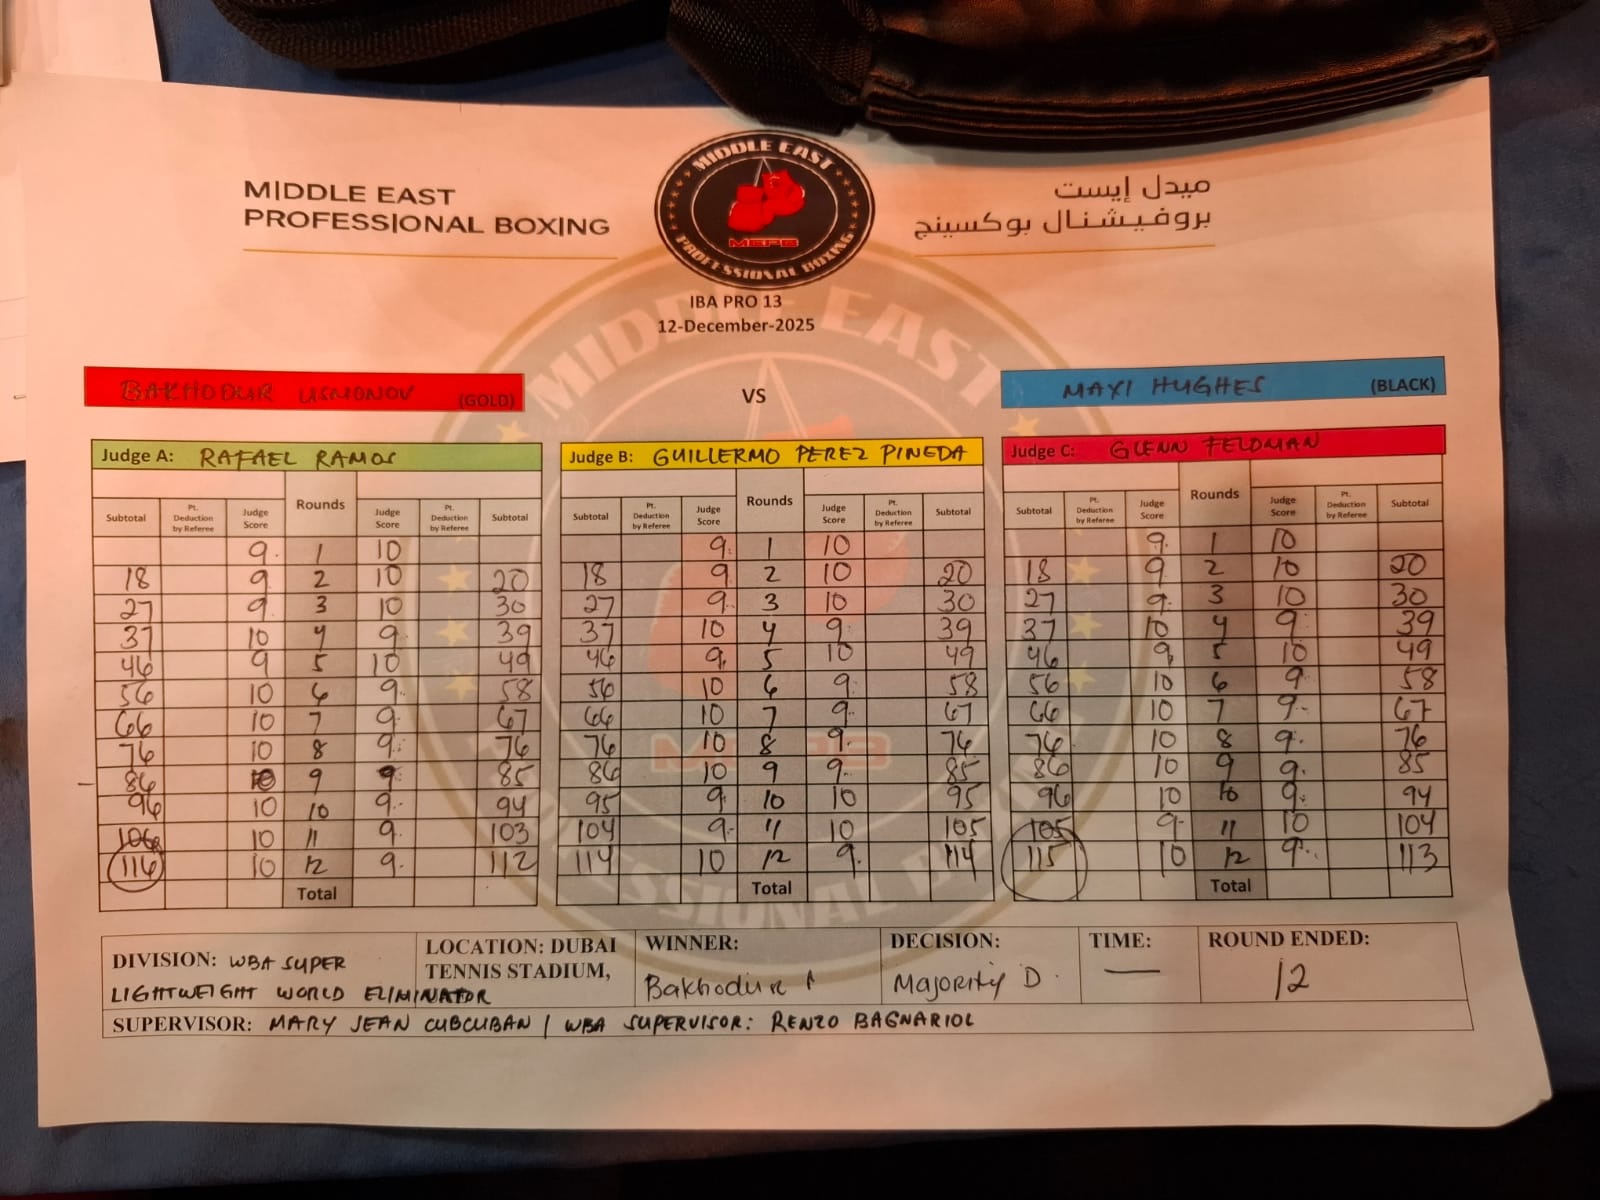 MIDDLE EAST
PROFESSIONAL BOXING
MIDDLE EAST
PROFESSIONAL BOXING
MEPB
ميدل إيست
بروفيشنال بوكسينج
IBA PRO 13
12-December-2025
BAKHODUR USMONOV (GOLD) VS MAXI HUGHES (BLACK)
Judge A: RAFAEL RAMOS Judge B: GUILLERMO PEREZ PINEDA Judge C: GLENN FELDMAN
Subtotal Pt. Deduction by Referee Judge Score Rounds Judge Score Pt. Deduction by Referee Subtotal Subtotal Pt. Deduction by Referee Judge Score Rounds Judge Score Pt. Deduction by Referee Subtotal Subtotal Pt. Deduction by Referee Judge Score Rounds Judge Score Pt. Deduction by Referee Subtotal
9 1 10 9 1 10 9 1 10
18 9 2 10 20 18 9 2 10 20 18 9 2 10 20
27 9 3 10 30 27 9 3 10 30 27 9 3 10 30
37 10 4 9 39 37 10 4 9 39 37 10 4 9 39
46 9 5 10 49 46 9 5 10 49 46 9 5 10 49
56 10 6 9 58 56 10 6 9 58 56 10 6 9 58
66 10 7 9 67 66 10 7 9 67 66 10 7 9 67
76 10 8 9 76 76 10 8 9 76 76 10 8 9 76
86 10 9 9 85 86 10 9 9 85 86 10 9 9 85
96 10 10 9 94 95 9 10 10 95 96 10 10 9 94
106 10 11 9 103 104 9 11 10 105 105 9 11 10 104
116 10 12 9 112 114 10 12 9 114 115 10 12 9 113
Total Total Total
DIVISION: WBA SUPER LIGHTWEIGHT WORLD ELIMINATOR
LOCATION: DUBAI TENNIS STADIUM,
WINNER: Bakhodur
DECISION: Majority D.
TIME: —
ROUND ENDED: 12
SUPERVISOR: MARY JEAN CUBCUBAN / WBA SUPERVISOR: RENZO BAGNARIOL